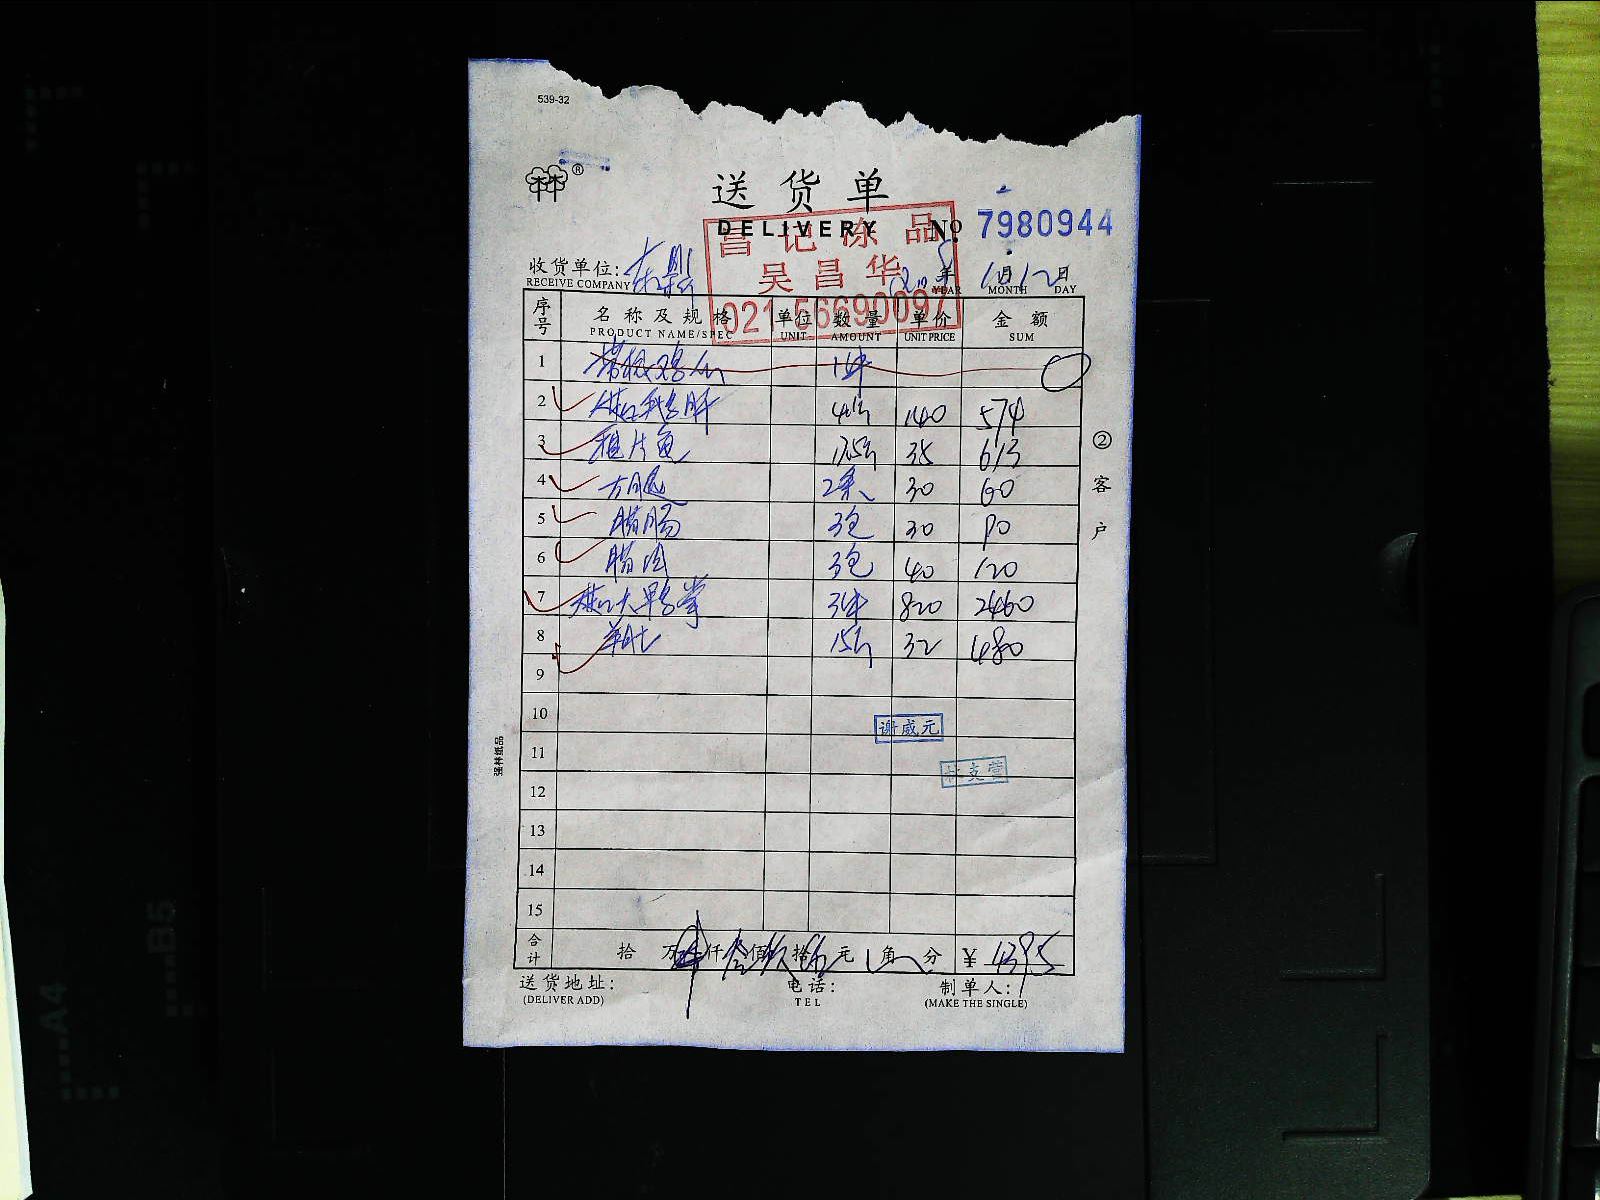 539-32
送货单
DELIVERY No. 7980944
昌记冻品
吴昌华
021-56690097
收货单位:
RECEIVE COMPANY
年 月 日
YEAR MONTH DAY
序号 名称及规格 单位 数量 单价 金额
PRODUCT NAME/SPEC UNIT AMOUNT UNIT PRICE SUM
1 1件
2 140 574
3 35 613
4 方腿 2条 30 60
5 腊肠 3包 30 90
6 腊肉 3包 40 120
7 3件 820 2460
8 羊肚 15斤 32 480
9
10
谢威元
11
12
13
14
15
合计 拾 万 仟 佰 拾 元 角 分 ¥ 4395
送货地址: 电话: 制单人:
(DELIVER ADD) TEL (MAKE THE SINGLE)
②客户
强林纸品